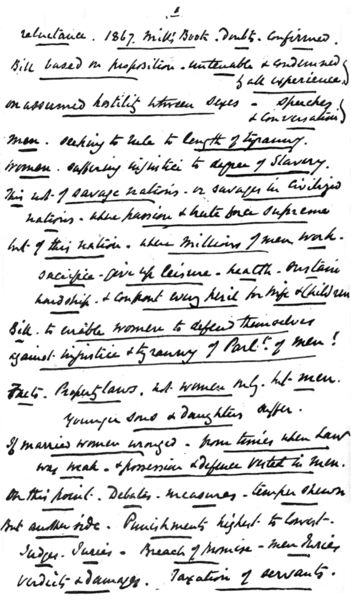 reluctance. 1867. Mill's Book. Doubts. Confirmed.
Bill based on proposition - untenable & condemned
by all experience
on assumed hostility between Sexes - speeches
& Conversation
Men. seeking to rule to length of tyranny.
Women. suffering injustice to degree of Slavery.
This not of savage nations - or savages in Civilized
nations - where passion & brute force supreme
but of this nation - where Millions of men work -
sacrifice - give up leisure - health - sustain
hardship - & confront every peril for Wife & Children
Bill - to enable women to defend themselves
against injustice & tyranny of Parlt. of men!
Facts. Property laws. not women only. but men.
Younger sons & daughters suffer.
If married women wronged - from times when Law
was weak - & possession & defence vested in men.
On this point - Debates - measures - temper shewn
But another side - Punishments highest to lowest -
Judges. Juries - Breach of Promise - Men Juries
Verdicts & damages. Taxation of servants.